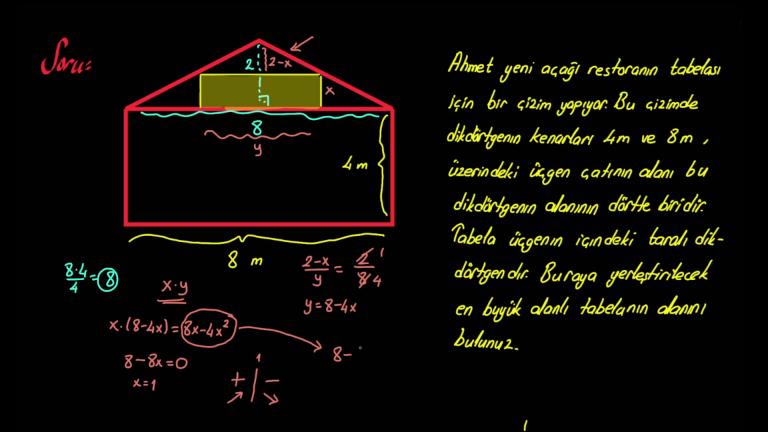 Soru:
2
2-x
x
8
y
4 m
8 m
Ahmet yeni açağı restoranın tabelası
için bir çizim yapıyor. Bu çizimde
dikdörtgenin kenarları 4m ve 8m,
üzerindeki üçgen çatının alanı bu
dikdörtgenin alanının dörtte biridir.
Tabela üçgenin içindeki taralı dik-
dörtgendir. Buraya yerleştirilecek
en büyük alanlı tabelanın alanını
bulunuz.
8.4/4 = 8
x.y
x.(8-4x) = 8x-4x²
8-8x=0
x=1
1
+ | -
(2-x)/y = 2/8 1 4
y=8-4x
8-